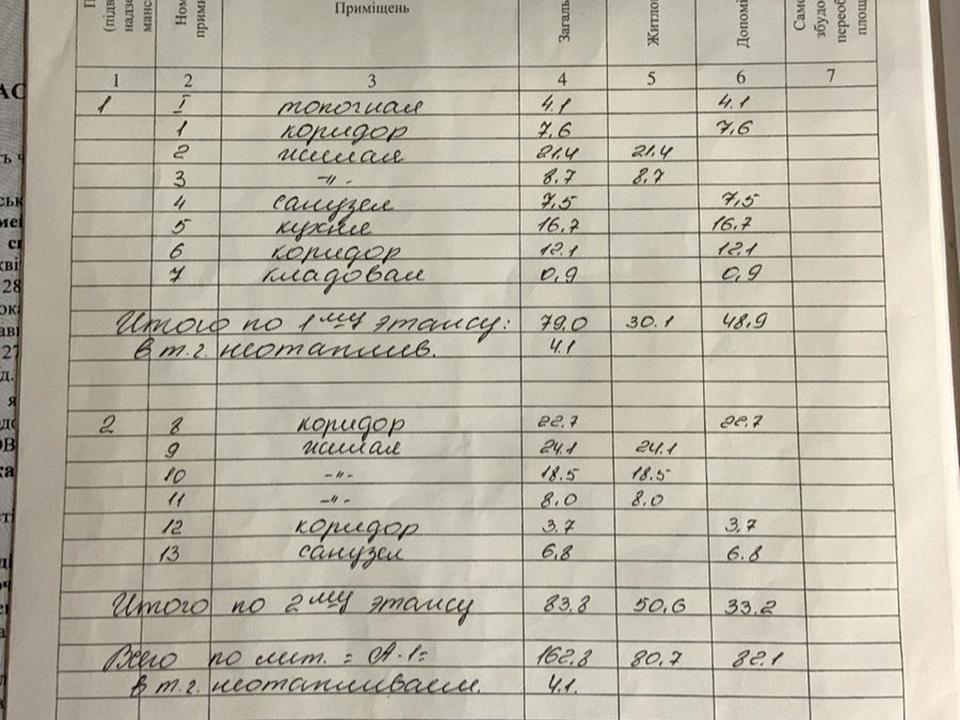 Приміщень
1 2 3 4 5 6 7
1 I топочная 4.1 4.1
1 коридор 7,6 7,6
2 жилая 21.4 21.4
3 -"- 8.7 8,7
4 санузел 7,5 7,5
5 кухня 16,7 16,7
6 коридор 12.1 12.1
7 кладовая 0,9 0,9
Итого по 1му этажу: 79.0 30.1 48,9
в т.ч. неотаплив. 4.1
2 8 коридор 22.7 22,7
9 жилая 24.1 24.1
10 -"- 18.5 18.5
11 -"- 8.0 8.0
12 коридор 3.7 3,7
13 санузел 6,8 6.8
Итого по 2му этажу 83.8 50,6 33.2
Всего по лит. =А-1= 162.8 80.7 82.1
в т.ч. неотапливаем. 4.1.